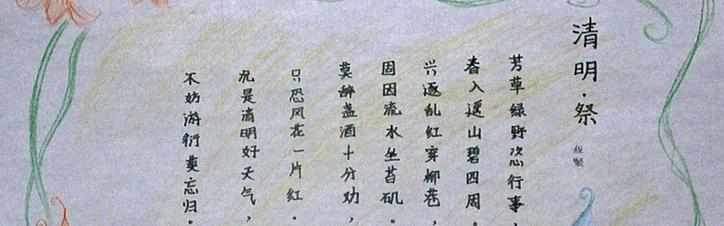 清明·祭
程颢
芳草绿野恣行事，
春入遥山碧四周。
兴逐乱红穿柳巷，
固因流水坐苔矶。
莫辞盏酒十分劝，
只恐风花一片红。
况是清明好天气，
不妨游衍莫忘归。